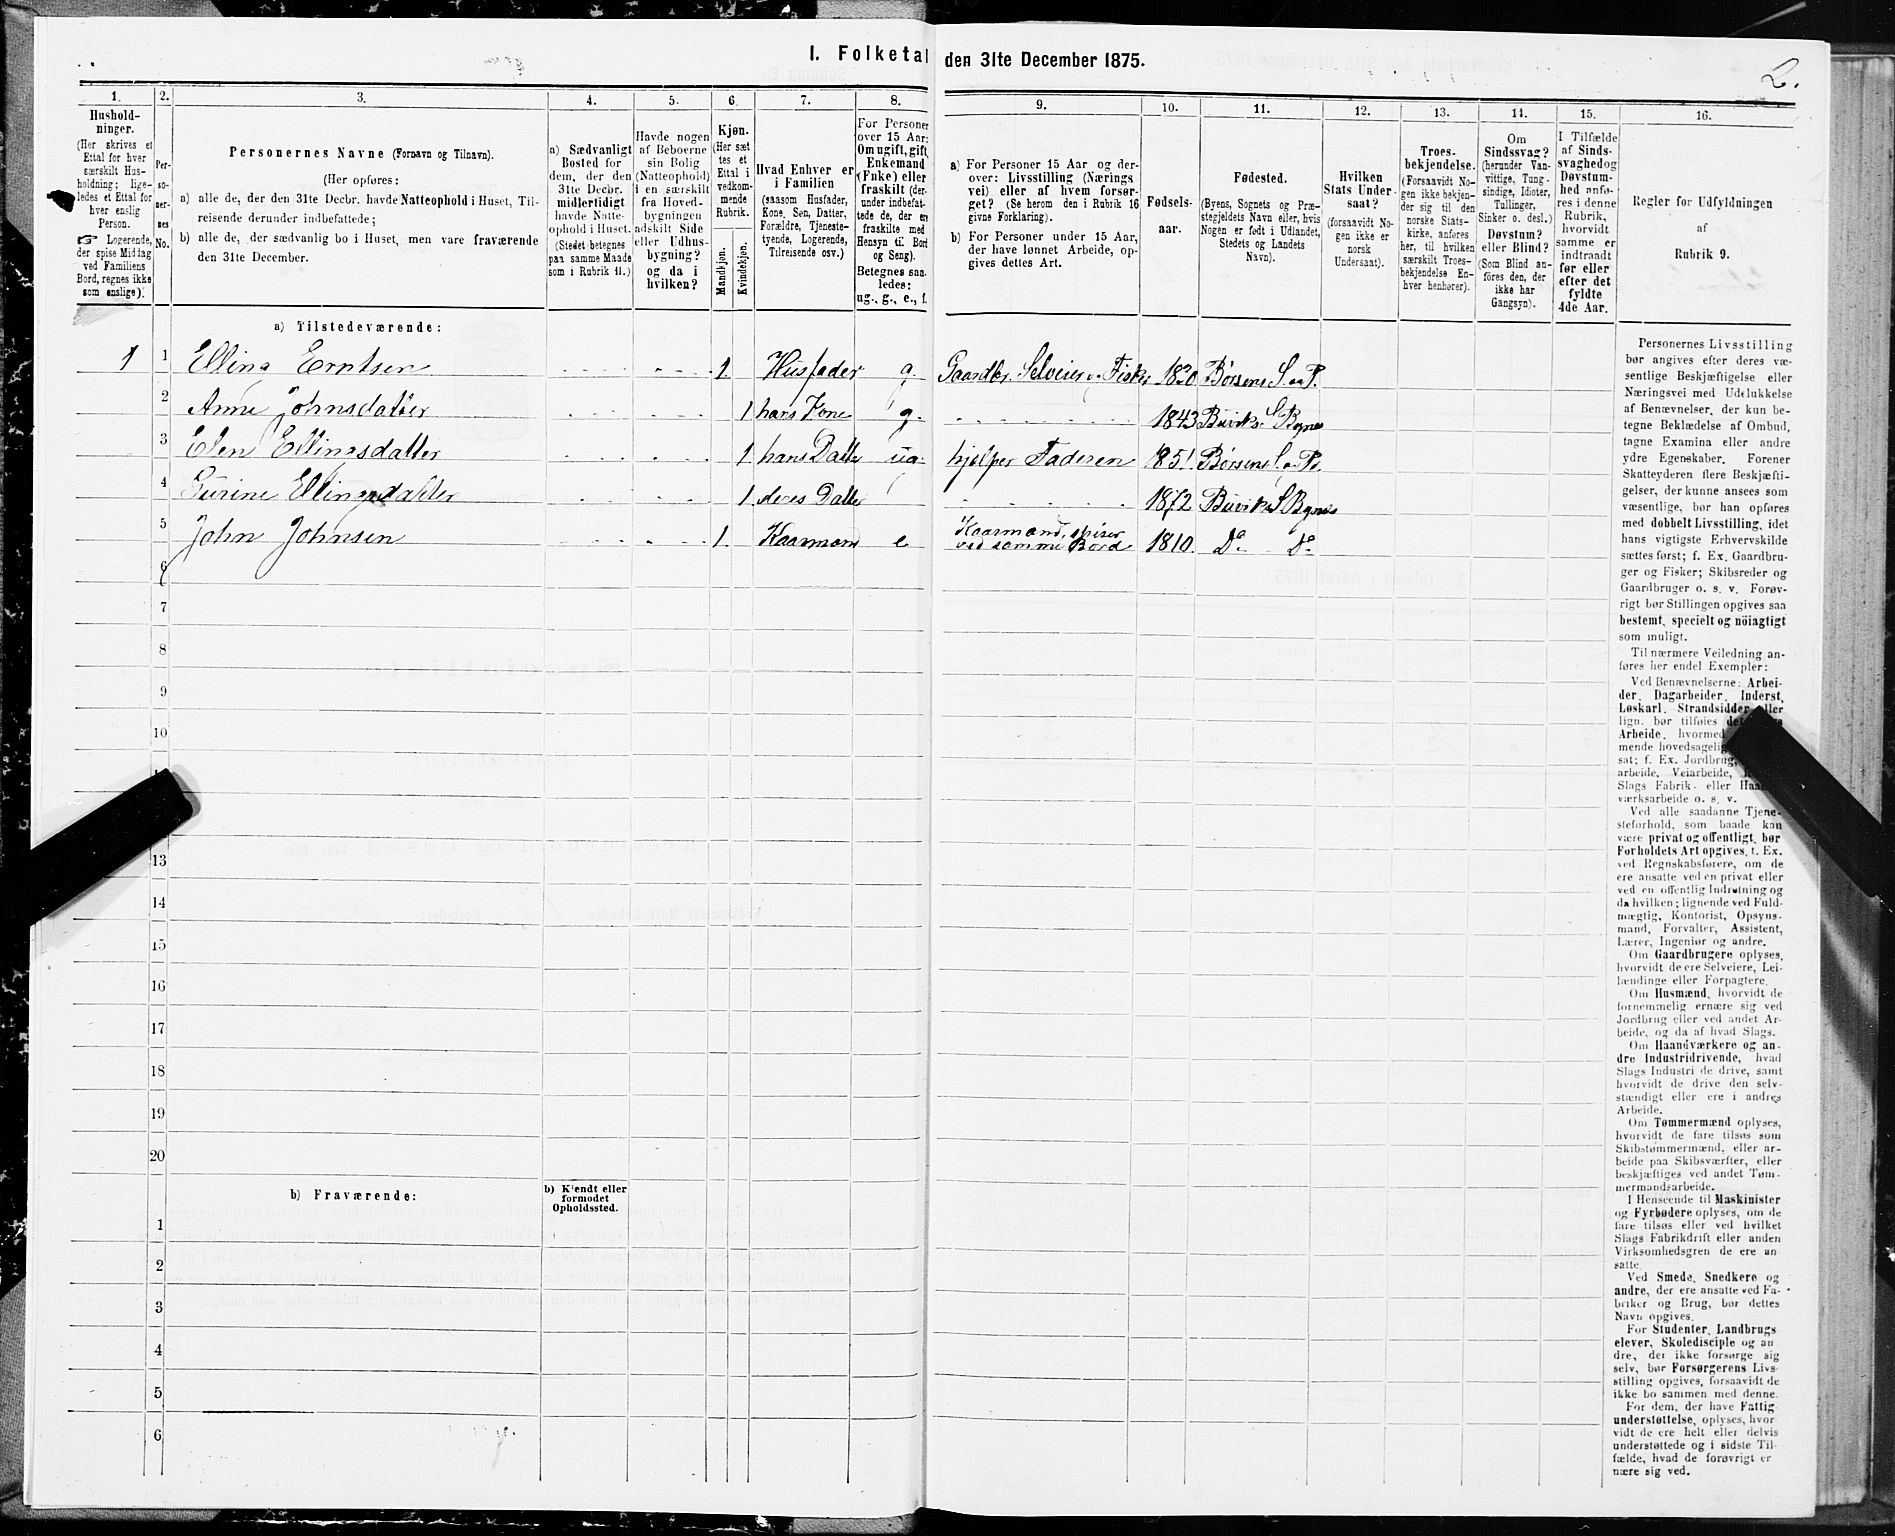 I. Folketal den 31te December 1875.
2.
1. 2. 3. 4. 5. 6. 7. 8. 9. 10. 11. 12. 13. 14. 15. 16.
Hushold-
ninger.
(Her skrives et
Ettal for hver
særskilt Hus-
holdning; lige-
ledes et Ettal for
hver enslig
Person.
☞ Logerende,
der spise Middag
ved Familiens
Bord, regnes ikke
som enslige).
Per-
so-
ner-
nes
No.
Personernes Navne (Fornavn og Tilnavn).
(Her opføres:
a) alle de, der den 31te Decbr. havde Natteophold i Huset, Til-
reisende derunder indbefattede;
b) alle de, der sædvanlig bo i Huset, men vare fraværende
den 31te December.
a) Sædvanligt
Bosted for
dem, der den
31te Decbr.
midlertidigt
havde Natte-
ophold i Huset.
(Stedet betegnes
paa samme Maade
som i Rubrik 11.)
Havde nogen
af Beboerne
sin Bolig
(Natteophold)
i en særskilt
fra Hoved-
bygningen
adskilt Side
eller Udhus-
bygning?
og da i
hvilken?
Kjøn.
(Her sæt
tes et
Ettal i
vedkom-
mende
Rubrik.
Mandkjøn.
Kvindekjøn.
Hvad Enhver er
i Familien
(saasom Husfader,
Kone, Søn, Datter,
Forældre, Tjeneste-
tyende, Logerende,
Tilreisende osv.)
For Personer
over 15 Aar:
Om ugift, gift,
Enkemand
(Enke) eller
fraskilt (der-
under indbefat-
tede de, der er
fraskilte med
Hensyn til Bord
og Seng).
Betegnes saa-
ledes:
ug., g., e., f.
a) For Personer 15 Aar og der-
over: Livsstilling (Nærings
vei) eller af hvem forsør-
get? (Se herom den i Rubrik 16
givne Forklaring).
b) For Personer under 15 Aar,
der have lønnet Arbeide, op-
gives dettes Art.
Fødsels-
aar.
Fødested.
(Byens, Sognets og Præ-
stegjeldets Navn eller, hvis
Nogen er født i Udlandet,
Stedets og Landets
Navn).
Hvilken
Stats Under-
saat?
(forsaavidt No-
gen ikke er
norsk
Undersaat).
Troes-
bekjendelse.
(Forsaavidt No-
gen ikke bekjen-
der sig til den
norske Stats-
kirke, anføres
her, til hvilken
særskilt Troes-
bekjendelse En-
hver henhører).
Om
Sindssvag?
(herunder Van-
vittige, Tung-
sindige, Idioter,
Tullinger,
Sinker o. desl.)
Døvstum?
eller Blind?
(Som Blind an-
föres den, der
ikke har
Gangsyn).
I Tilfælde
af Sinds-
svaghed og
Døvstum-
hed anfø-
res i denne
Rubrik,
hvorvidt
samme er
indtraadt
før eller
efter det
fyldte
4de Aar.
Regler for Udfyldningen
af
Rubrik 9.
a) Tilstedeværende:
1 1 Elling Erntsen 1 Husfader g. Gaardbr. Selveier o. Fisker 1820 Børsens S. o. P.
2 Anne Johnsdatter 1 hans Kone g. 1843 Buviks S Bgnes
3 Elen Ellingsdatter 1 hans Datter ug. hjelper Faderen 1851 Børsens S. o. P.
4 Gurine Ellingsdatter 1 deres Datter 1872 Buviks S Bgnes
5 John Johnsen 1. Kaarmand e Kaarmand, spiser
ved samme Bord 1810. Do. Do.
6
7
8
9
10
13
14
15
16
17
18
19
20
b) Fraværende:
b) Kjendt eller
formodet
Opholdssted.
1
2
3
4
5
6
Personernes Livsstilling
bør angives efter deres væ-
sentlige Beskjæftigelse eller
Næringsvei med Udelukkelse
af Benævnelser, der kun be-
tegne Beklædelse af Ombud,
tagne Examina eller andre
ydre Egenskaber. Forener
Skatteyderen flere Beskjæfti-
gelser, der kunne ansees som
væsentlige, bør han opføres
med dobbelt Livsstilling, idet
hans vigtigste Erhvervskilde
sættes først; f. Ex. Gaardbru-
ger og Fisker; Skibsreder og
Gaardbruger o. s. v. Forøv-
rigt bør Stillingen opgives saa
bestemt, specielt og nöiagtigt
som muligt.
Til nærmere Veiledning an-
føres her endel Exempler:
Ved Benævnelserne: Arbei-
der, Dagarbeider, Inderst,
Løskarl, Strandsidder eller
lign. bør tilføies det
Arbeide, hvormed
mende hovedsagelig
sat; f. Ex. Jordbrug,
arbeide, Veiarbeide,
Slags Fabrik- eller Haand-
værksarbeide o. s. v.
Ved alle saadanne Tjene-
steforhold, som baade kan
være privat og offentligt, bør
Forholdets Art opgives, t. Ex.
ved Regnskabsførere, om de
ere ansatte ved en privat eller
ved en offentlig Indretning og
da hvilken; lignende ved Fuld-
mægtig, Kontorist, Opsyns-
mand, Forvalter, Assistent,
Lærer, Ingeniør og andre.
Om Gaardbrugere oplyses,
hvorvidt de ere Selveiere, Lei-
lændinge eller Forpagtere.
Om Husmænd, hvorvidt de
fornemmelig ernære sig ved
Jordbrug eller ved andet Ar-
beide, og da af hvad Slags.
Om Haandværkere og an-
dre Industridrivende, hvad
Slags Industri de drive, samt
hvorvidt de drive den selv-
stændigt eller ere i andres
Arbeide.
Om Tømmermænd oplyses,
hvorvidt de fare tilsøs som
Skibstømmermænd, eller ar-
beide paa Skibsværfter, eller
beskjæftiges ved andet Tøm-
mermandsarbeide.
I Henseende til Maskinister
og Fyrbødere oplyses, om de
fare tilsøs eller ved hvilket
Slags Fabrikdrift eller anden
Virksomhedsgren de ere an-
satte.
Ved Smede, Snedkere og
andre, der ere ansatte ved Fa-
briker og Brug, bør dettes
Navn opgives.
For Studenter, Landbrugs
elever, Skoledisciple og an
dre, der ikke forsørge sig
selv, bør Forsørgerens Livs-
stilling opgives, forsaavidt de
ikke bo sammen med denne.
For dem, der have Fattig
understøttelse, oplyses, hvor
vidt de ere helt eller delvis
understøttede og i sidste Til-
fælde, hvad de forøvrigt er
nære sig ved.